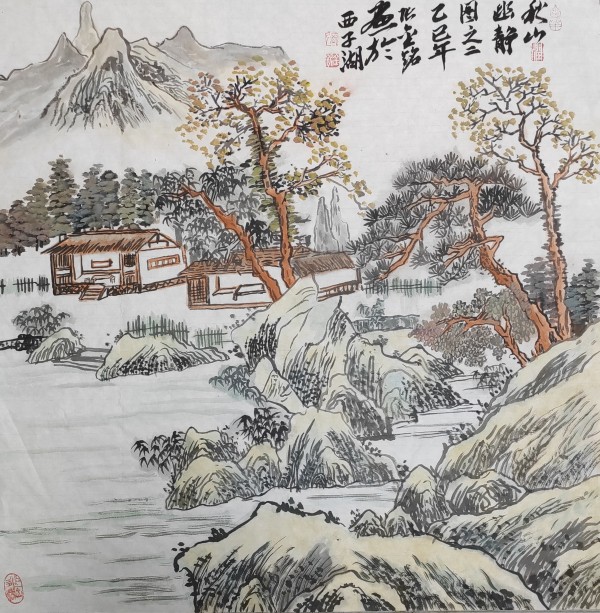 秋山
幽静
图之二
乙巳年
张金
画於
西子湖